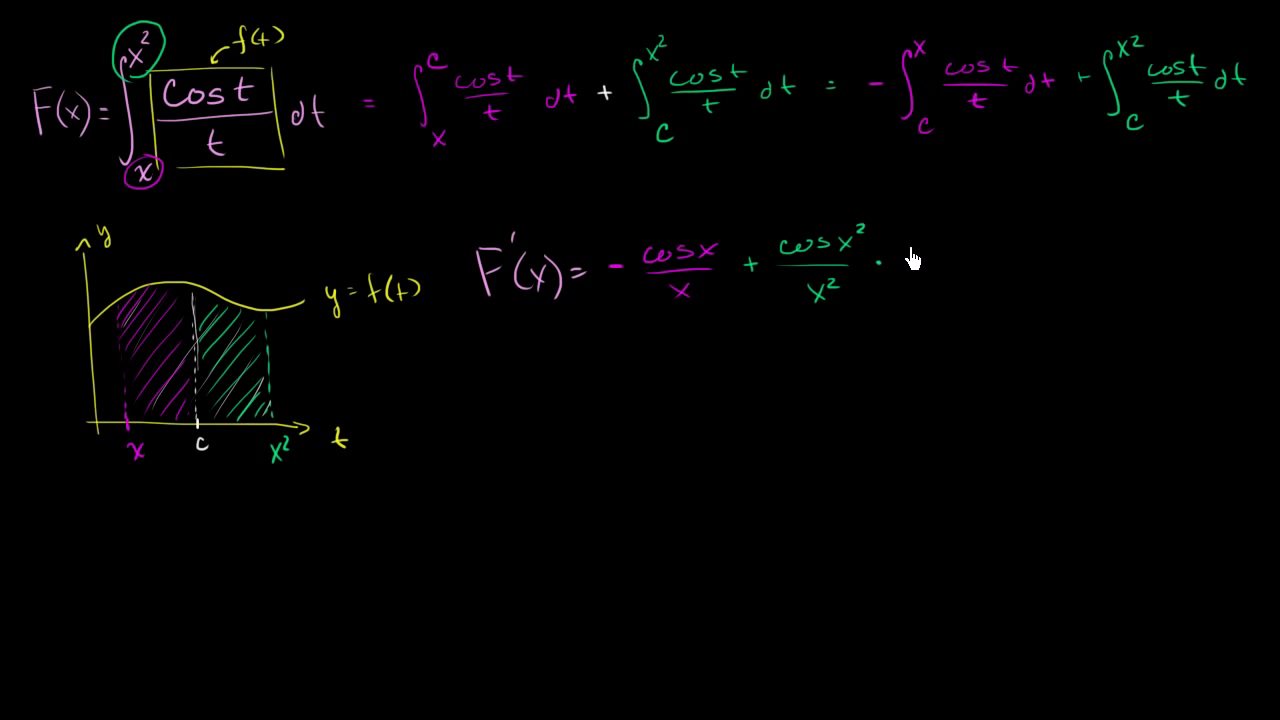 f(t)
F(x) = ∫_x^{x²} cos t / t dt = ∫_x^c cos t / t dt + ∫_c^{x²} cos t / t dt = - ∫_c^x cos t / t dt + ∫_c^{x²} cos t / t dt
y
F'(x) = - cos x / x + cos x² / x² ·
y = f(t)
x c x² t